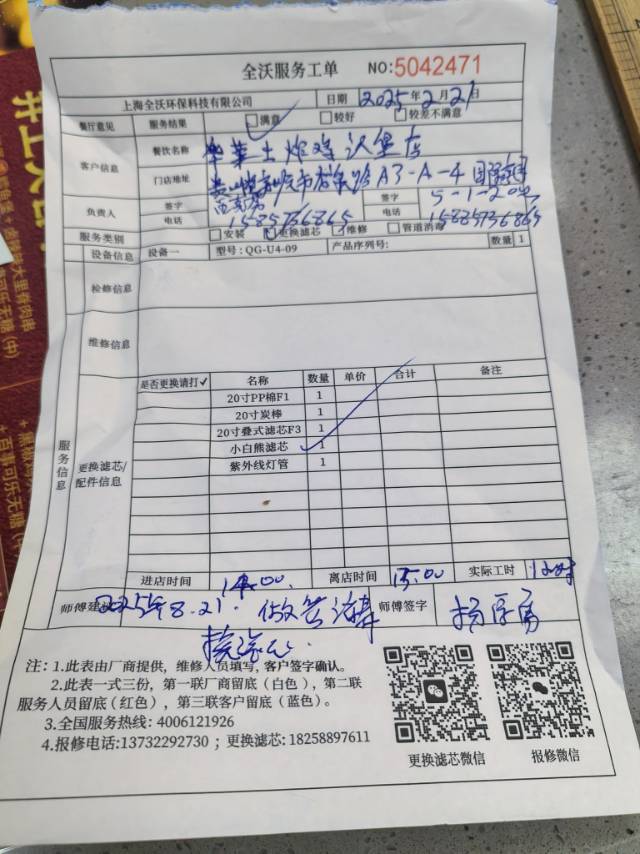 全沃服务工单 NO:5042471
上海全沃环保科技有限公司 日期 2025年2月21日
餐厅意见 服务结果 满意 较好 较差不满意
客户信息 餐饮名称 华莱士炸鸡汉堡店
门店地址 A3-A-4
负责人 签字 签字
电话 15857366865 电话 15857366865
服务类别 安装 更换滤芯 维修 管道消毒
设备信息 设备一 型号: QG-U4-09 产品序列号: 数量 1
检修信息
维修信息
服务信息
更换滤芯/配件信息
是否更换请打√ 名称 数量 单价 合计 备注
20寸PP棉F1 1
20寸炭棒 1
20寸叠式滤芯F3 1
小白熊滤芯 1
紫外线灯管 1
进店时间 14:00. 离店时间 15:00 实际工时
师傅建议 2025年8.21. 师傅签字
注: 1.此表由厂商提供, 维修人员填写, 客户签字确认。
2.此表一式三份, 第一联厂商留底(白色), 第二联
服务人员留底(红色), 第三联客户留底(蓝色)。
3.全国服务热线: 4006121926
4.报修电话:13732292730 ; 更换滤芯: 18258897611
更换滤芯微信 报修微信